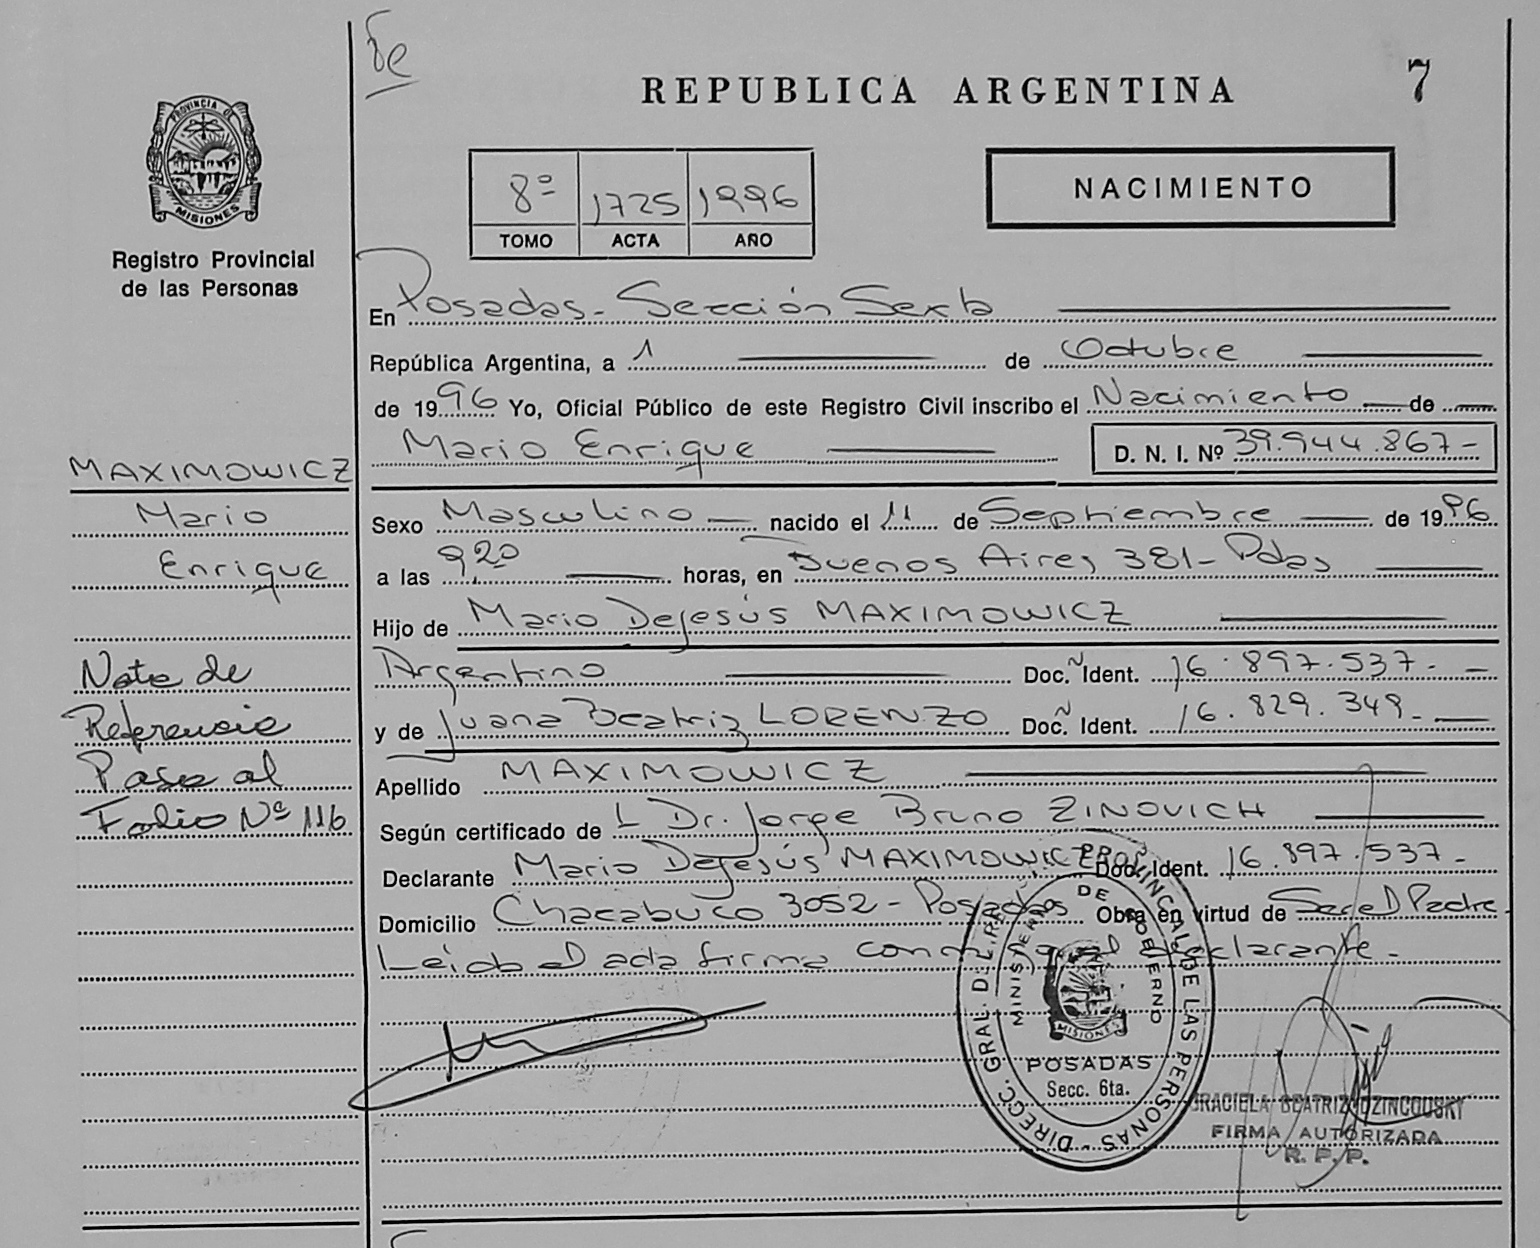 REPUBLICA ARGENTINA
7
PROVINCIA DE
MISIONES
Registro Provincial
de las Personas
8º 1725 1996
TOMO ACTA AÑO
NACIMIENTO
En Posadas - Sección Sexta
República Argentina, a 1 de Octubre
de 1996 Yo, Oficial Público de este Registro Civil inscribo el Nacimiento de
Mario Enrique D. N. I. Nº 39.944.867-
MAXIMOWICZ
Mario
Enrique
Sexo Masculino nacido el 11 de Septiembre de 1996
a las 9 20 horas, en Buenos Aires 381 - Pdas
Hijo de Mario Dejesús MAXIMOWICZ
Argentino Doc. Ident. 16.897.537-
y de Juana Beatriz LORENZO Doc. Ident. 16.829.349-
Apellido MAXIMOWICZ
Según certificado de L Dr. Jorge Bruno ZINOVICH
Declarante Mario Dejesús MAXIMOWICZ Doc. Ident. 16.897.537-
Domicilio Chacabuco 3052 - Posadas Obra en virtud de Ser el Padre
Leída el acta firma conmigo el declarante-
Nota de
Referencia
Pase al
Folio Nº 116
DIRECC. GRAL. DEL REG. PROVINCIAL DE LAS PERSONAS
MINISTERIO DE GOBIERNO
MISIONES
POSADAS
Secc. 6ta.
GRACIELA BEATRIZ
FIRMA AUTORIZADA
R. P. P.